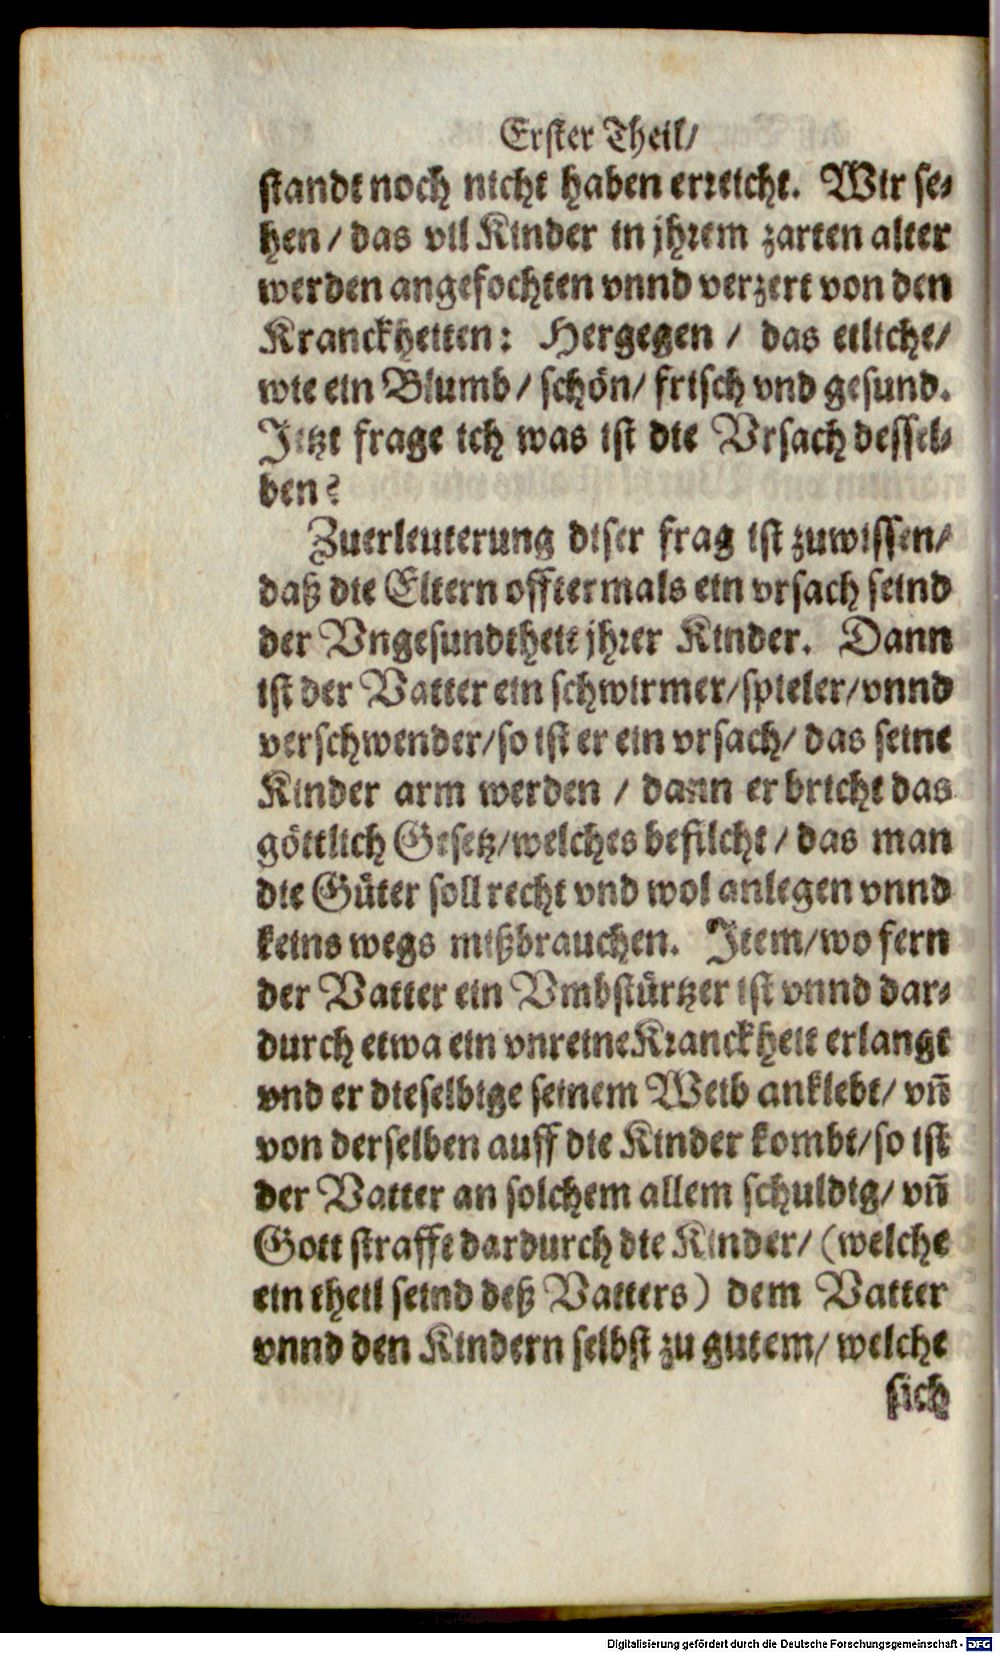 Erster Theil/
standt noch nicht haben erreicht. Wir se-
hen / das vil Kinder in jhrem zarten alter
werden angefochten vnnd verzert von den
Kranckheiten: Hergegen / das etliche/
wie ein Blumb / schön/ frisch vnd gesund.
Jetzt frage ich was ist die Vrsach dessel-
ben?
Zuerleuterung diser frag ist zuwissen/
daß die Eltern offtermals ein vrsach seind
der Vngesundtheit jhrer Kinder. Dann
ist der Vatter ein schwirmer/spieler/vnnd
verschwender/so ist er ein vrsach/ das seine
Kinder arm werden / dann er bricht das
göttlich Gesetz/welches befilcht / das man
die Güter soll recht vnd wol anlegen vnnd
keins wegs mißbrauchen. Item/wo fern
der Vatter ein Vmbstürtzer ist vnnd dar-
durch etwa ein vnreine Kranckheit erlangt
vnd er dieselbige seinem Weib anklebt/ vn̄
von derselben auff die Kinder kombt/so ist
der Vatter an solchem allem schuldig/ vn̄
Gott strafft dardurch die Kinder/ (welche
ein theil seind deß Vatters) dem Vatter
vnnd den Kindern selbst zu gutem/ welche
sich
Digitalisierung gefördert durch die Deutsche Forschungsgemeinschaft - DFG